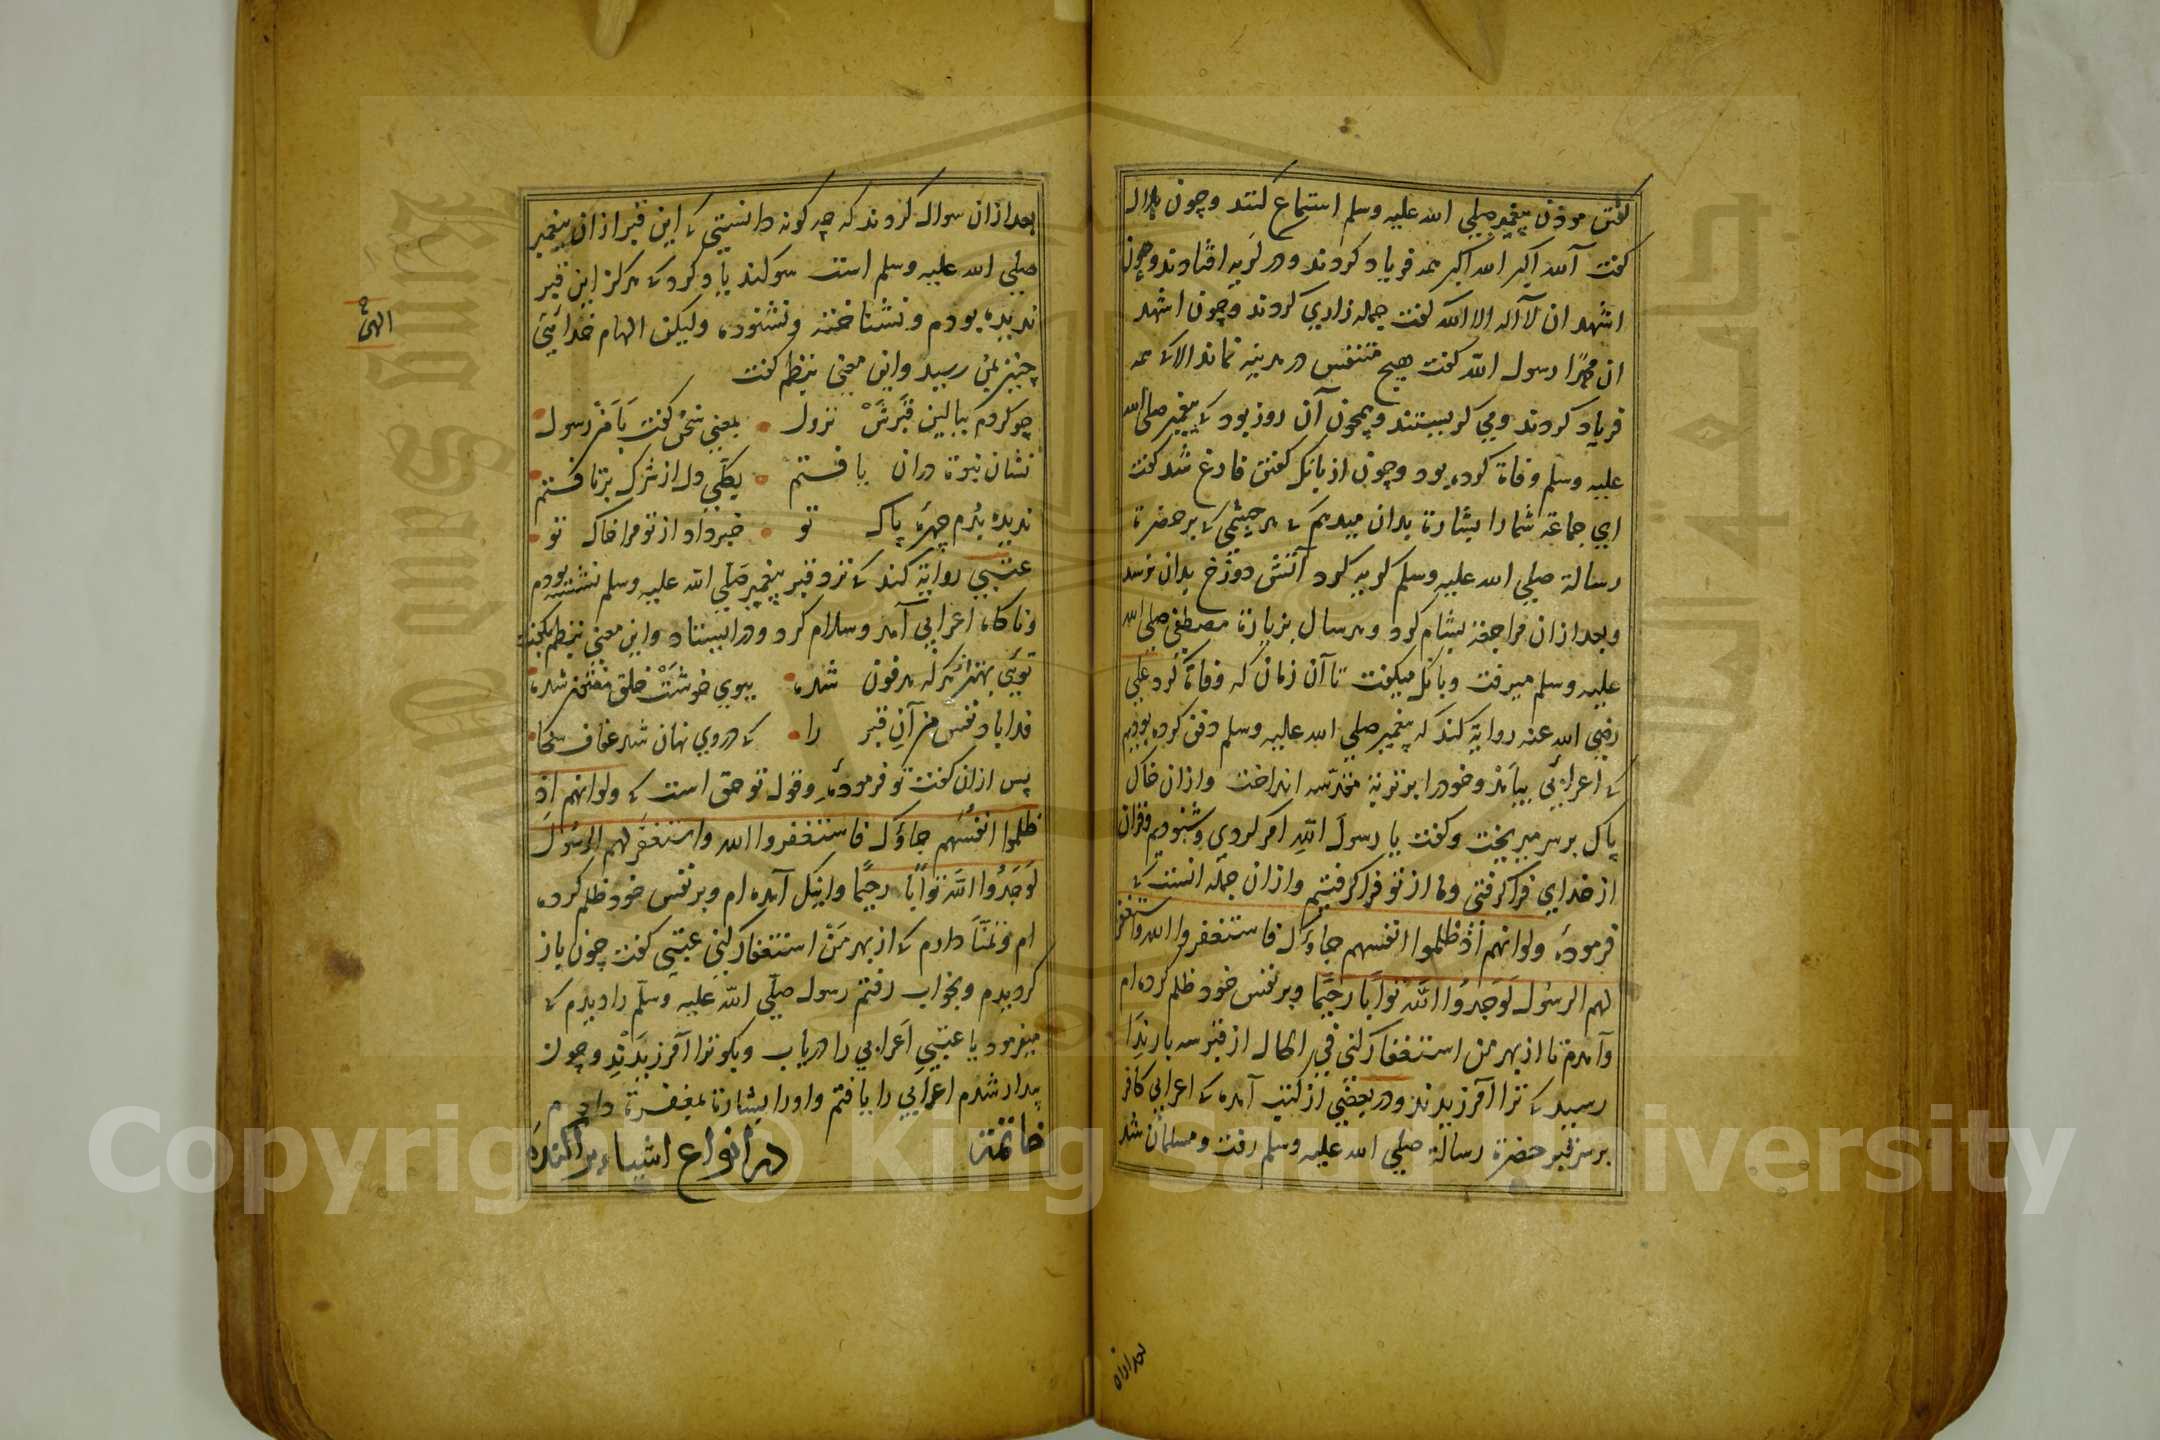 گفتن موذن پیغمبر صلی الله علیه وسلم استماع کنند وچون بلال
گفت الله اکبر الله اکبر همه فریاد کردند ودر گریه افتادند وچون
اشهد ان لآ اله الا الله گفت جمله زاری کردند وچون اشهد
ان محمدًا رسول الله گفت هیچ متنفس در مدینه نماند الا که همه
فریاد کردند ومی گریستند وهمچون آن روز بود که پیغمبر صلی الله
علیه وسلم وفاة کرده بود وچون از بانک گفتن فارغ شد گفت
ای جماعة شما را بشارة بدان میدهم که هر چشمی که بر حضرة
رسالة صلی الله علیه وسلم گریه کرد آتش دوزخ بدان نرسد
وبعد ازان مراجعة بشام کرد وهر سال بزیارة مصطفی صلی الله
علیه وسلم میرفت وبانک میگفت تا آن زمان که وفاة کرد علی
رضی الله عنه روایة کند که پیغمبر صلی الله علیه وسلم دفن کرده بودیم
که اعرابی بیامد وخودرا بر تربة مقدسه انداخت وازان خاک
پاک بر سر میریخت وگفت یا رسول الله امر کردی وشنودیم وقران
از خدای فرا گرفتی وما از تو فرا گرفتیم وازان جمله انست که
فرموده ولو انهم اذ ظلموا انفسهم جاؤک فاستغفروا الله واستغفر
لهم الرسول لوجدوا الله توابا رحیما وبر نفس خود ظلم کرده ام
وآمدم تا از بهر من استغفار کنی فی الحال از قبر سه بار ندا
رسید که ترا آفرزیدند ودر بعضی از کتب آمده که اعرابی کافر
بر سر قبر حضرة رسالة صلی الله علیه وسلم رفت ومسلمان شد
بعد ازان
بعد ازان سوال کردند که چه کونه دانستی که این قبر ازان پیغمبر
صلی الله علیه وسلم است سوکند یاد کرد که هرکز این قبر
ندیده بودم ونشناخته ونشنوده ولیکن الهام خدایی
الهی
چنین بمن رسید واین معنی بنظم گفت
چو کردم ببالین قبرش نزول بمعنی سخن گفت با من رسول
نشان نبوة دران یافتم دل از شرک برتافتم
ندیده بدم چهرۀ پاک تو خبر داد از تو مرا خاک تو
عتبی روایة کند که نزد قبر پیغمبر صلی الله علیه وسلم نشسته بودم
وناکاه اعرابی آمد وسلام کرد ودرایستاد واین معنی بنظم بگفت
تویی بهتر هرکه مدفون شده ببوی خوشت خلق مفتون شده
فدا باد نفس من آن قبر را که دروی نهان شد عفاف سخا
پس ازان گفت تو فرمودۀ وقول تو حق است که ولو انهم اذ
ظلموا انفسهم جاؤک فاستغفروا الله واستغفر لهم الرسول
لوجدوا الله توابا رحیما واینک آمده ام وبر نفس خود ظلم کرده
ام وتمنا دارم که از بهر من استغفار کنی عتبی گفت چون باز
کردیدم وبخواب رفتم رسول صلی الله علیه وسلم را دیدم که
میفرمود یا عتبی اعرابی را دریاب وبکو ترا آفرزیدند وچون
بیدار شدم اعرابی را یافتم واورا بشارة بمغفرة دادم
خاتمة در انواع اشیاء پراکنده